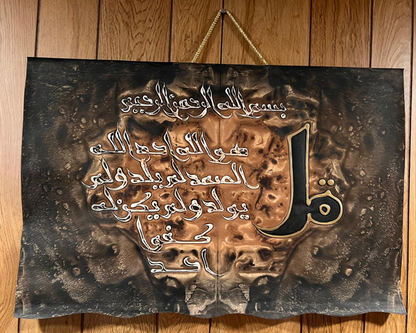 بسم الله الرحمن الرحيم
قل
هو الله احد الله
الصمد لم يلد ولم
يولد ولم يكن له
كفوا
احد